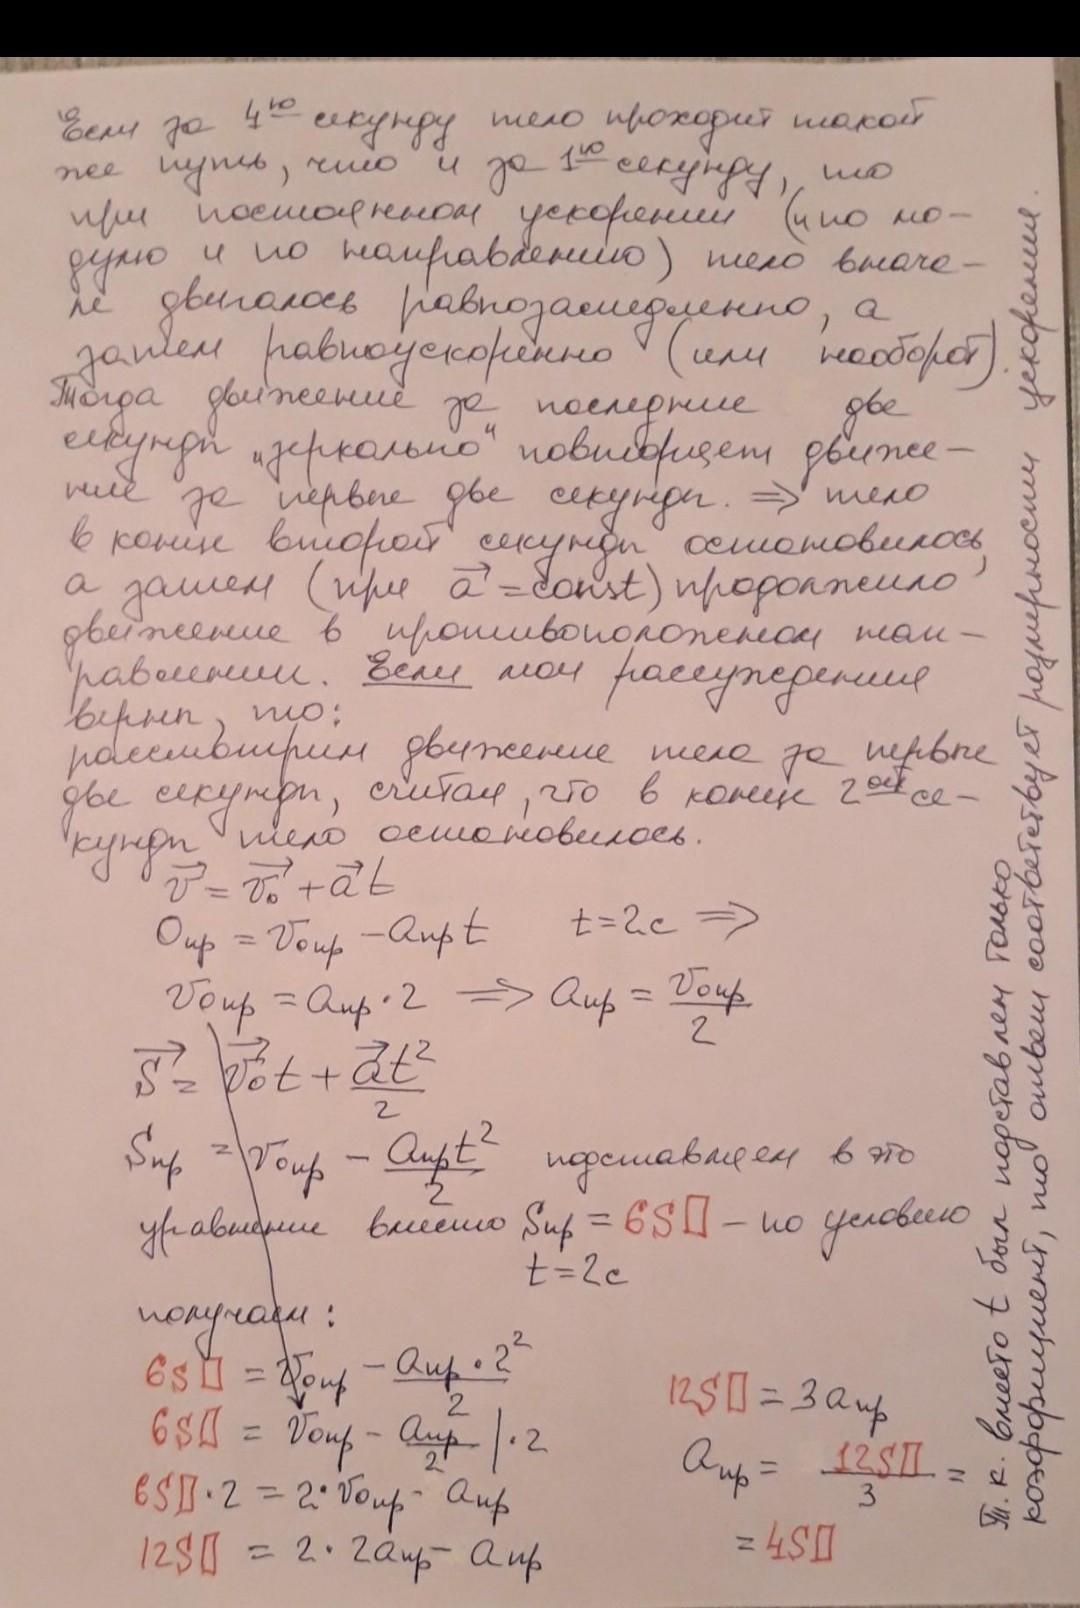 Если за 4ую секунду тело проходит такой
же путь, что и за 1ую секунду, то
при постоянном ускорении (и по мо-
дулю и по направлению) тело внача-
ле двигалось равнозамедленно, а
затем равноускоренно (или наоборот).
Тогда движение за последние две
секунды „зеркально“ повторяет движе-
ние за первые две секунды. => тело
в конце второй секунды остановилось,
а затем (при a⃗ = const) продолжило
движение в противоположном нап-
равлении. Если мои рассуждения
верны, то:
рассмотрим движение тела за первые
две секунды, считая, что в конце 2ой се-
кунды тело остановилось.
v⃗ = v⃗₀ + a⃗t
0пр = v₀пр − aпр t t = 2с =>
v₀пр = aпр · 2 => aпр = v₀пр/2
S⃗ = v⃗₀t + a⃗t²/2
Sпр = v₀пр − aпр t²/2 подставляем в это
уравнение вместо Sпр = 6S▯ – по условию
t = 2с
получаем:
6S▯ = v₀пр − aпр · 2²/2
6S▯ = v₀пр − aпр/2 | · 2
6S▯ · 2 = 2 · v₀пр − aпр
12S▯ = 2 · 2aпр − aпр
12S▯ = 3aпр
aпр = 12S▯/3 =
= 4S▯
Т.к. вместо t был подставлен только
коэффициент, то ответ соответствует размерности ускорения.